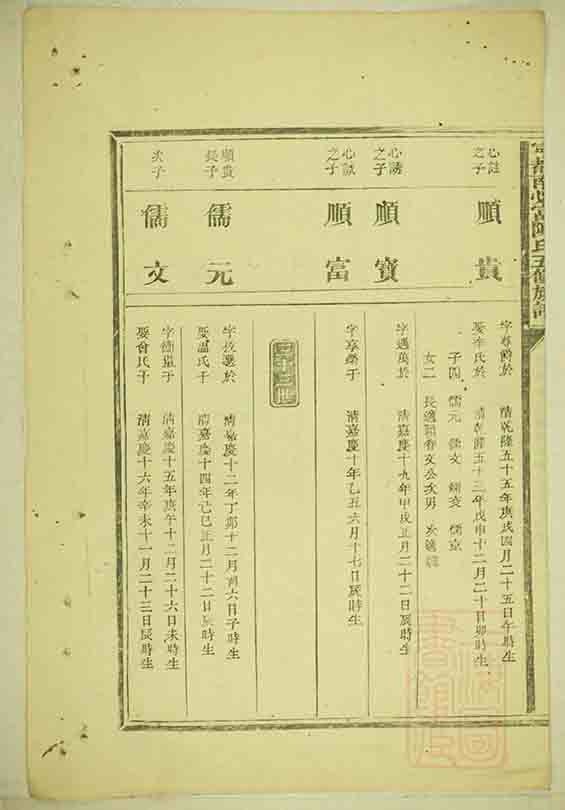 心誌之子
順貴
字尊爵於 清乾隆五十五年庚戌四月二十五日午時生
娶李氏於 清乾隆五十三年戊申十二月二十日卯時生
子四 儒元 儒文
女二 長適
心誘之子
順寶
字遇萬於 清嘉慶十九年甲戌正月二十二日辰時生
心誠之子
順富
字享榮于 清嘉慶十年乙丑六月十七日辰時生
二十三世
順貴長子
儒元
字拔選於 清嘉慶十二年丁卯十二月初六日子時生
娶溫氏于 清嘉慶十四年己巳正月二十二日辰時生
次子
儒文
清嘉慶十五年庚午十二月二十六日未時生
娶曾氏于 清嘉慶十六年辛未十一月二十三日辰時生